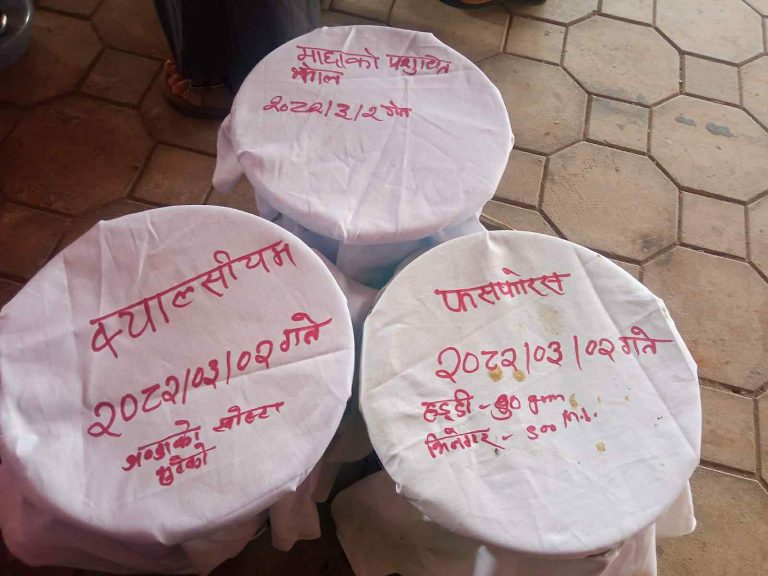 माछाको प्रशुचित
झोल
२०८२/३/२ गते
क्याल्सीयम
२०८२/०३/०२ गते
अण्डाको खोल्टा
भुटेको
फसफोरस
२०८२/०३/०२ गते
हड्डी - ५० gm
भिनेगर - ५०० M.L.